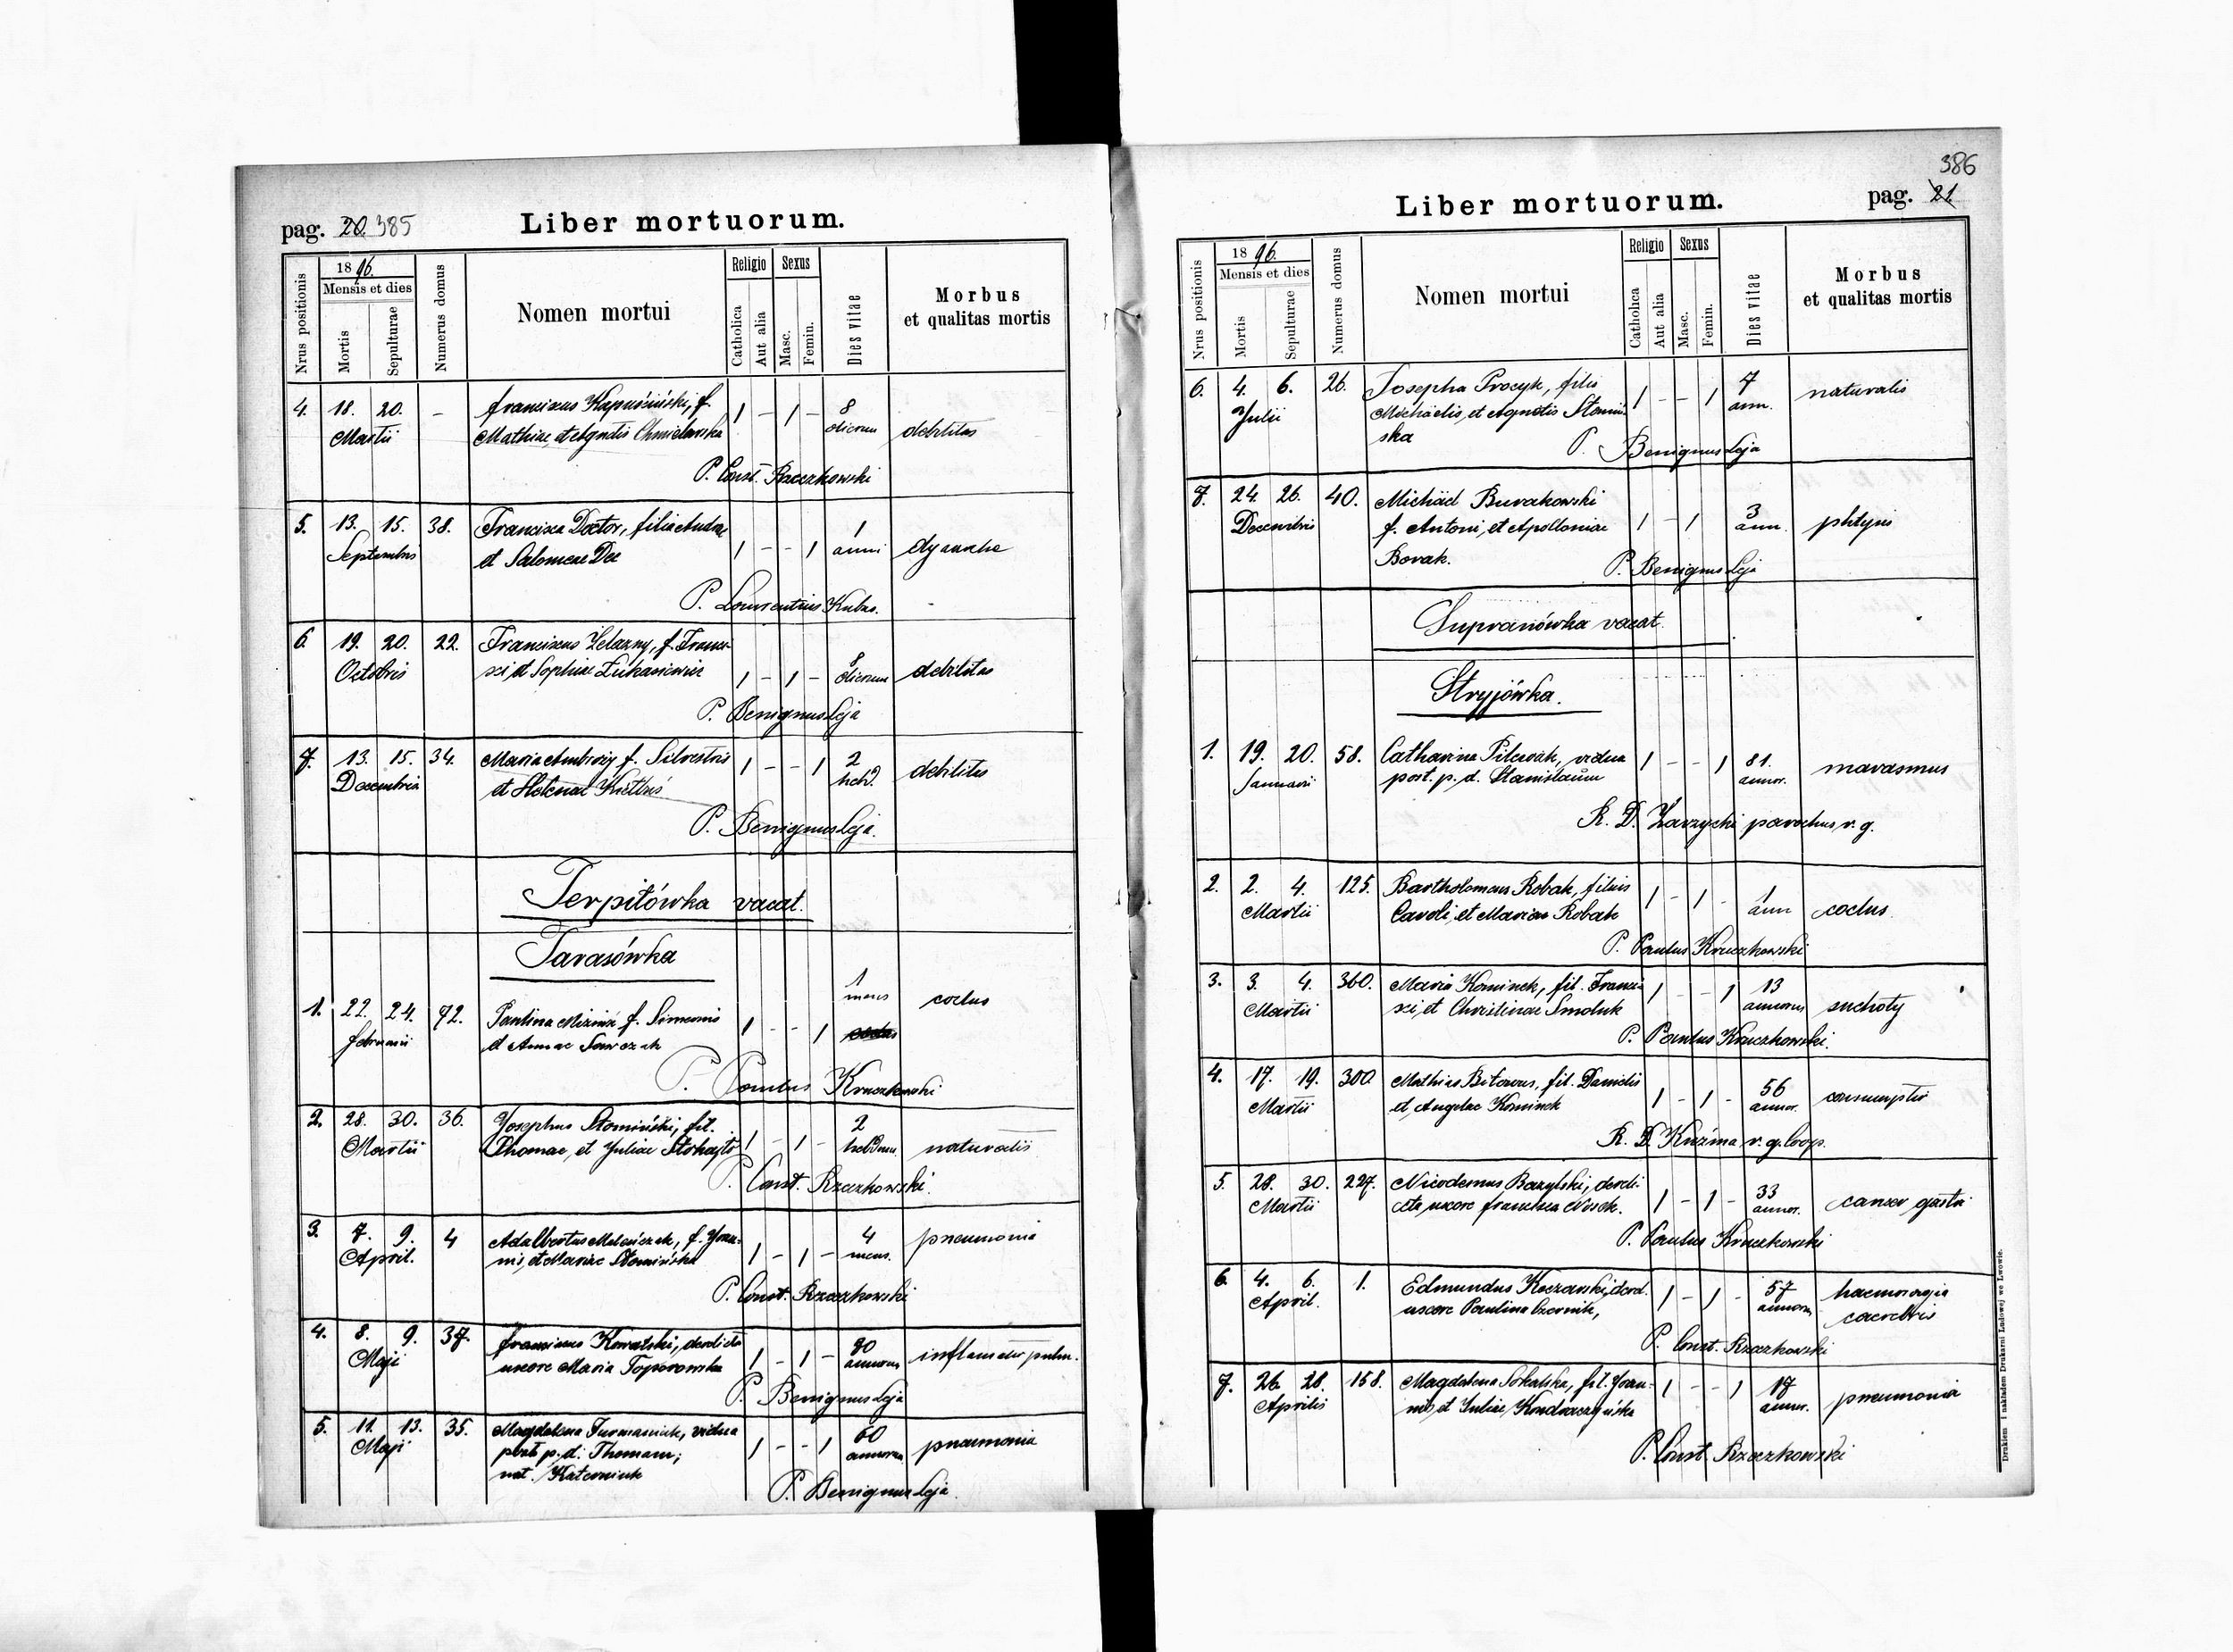 pag. 20. 385
Liber mortuorum.
Nrus positionis
1896.
Mensis et dies
Mortis
Sepulturae
Numerus domus
Nomen mortui
Religio
Catholica
Aut alia
Sexus
Masc.
Femin.
Dies vitae
Morbus
et qualitas mortis
4. 18. 20. – Franciscus Kapuściński, f. 1 – 1 – 8
Martii Mathiae, et Agnetis Chmielewska dierum debilitas
P. Const. Rzeczkowski
5. 13. 15. 38. Francisca Doctor, filia Andreae 1
Septembris et Salomeae Dec 1 – – 1 anni
P. Laurentius Kubas.
6. 19. 20. 22. Franciscus Żelazny, f. Franci-
Octobris sci et Sophiae Łukasiewicz 1 – 1 – 8 dierum debilitas
P. Benignus Leja
7. 13. 15. 34. Maria Ambroży f. Silvestris 1 – – 1 2
Decembris et Helenae hebd. debilitas
P. Benignus Leja.
Terpiłówka vacat.
Tarasówka
1. 22. 24. 72. Paulina f. Simeonis 1 – – 1 1 mens coctus
Februarii et Annae Sawczak
P. Paulus Kruczkowski
2. 28. 30. 36. Josephus Słomiński, fil. 1 – 1 – 2
Martii Thomae, et Juliae hebdom. naturalis
P. Const. Rzeczkowski.
3. 7. 9. 4 Adalbertus f. Joan- 4 pneumonia
April. nis, et Mariae Słomińska 1 – 1 – mens.
P. Const. Rzeczkowski
4. 8. 9. 37. Franciscus Kowalski, derelicta
Maji uxore Maria Toporowska 1 – 1 – annorum pulm.
P. Benignus Leja
5. 11. 13. 35. Magdalena Furmaniuk, vidua 60
Maji post p. d. Thomam; 1 – – 1 annorum pneumonia
nat. Katerniuk
P. Benignus Leja.
386
Liber mortuorum.
pag. 21.
Nrus positionis
1896.
Mensis et dies
Mortis
Sepulturae
Numerus domus
Nomen mortui
Religio
Catholica
Aut alia
Sexus
Masc.
Femin.
Dies vitae
Morbus
et qualitas mortis
6. 4. 6. 26. Josepha Procyk, filia 1 – – 1 7 naturalis
Julii Michaelis, et Agnetis Słomiń- ann.
ska
P. Benignus Leja
7. 24. 26. 40. Michael Burakowski 3
Decembris f. Antoni, et Apolloniae 1 – 1 ann. phtysis
Borak.
P. Benignus Leja
Supranówka vacat.
Stryjówka.
1. 19. 20. 58. Catharina vidua 1 – – 1 81.
Januarii post. p. d. Stanislaum annor. marasmus
R. D. Zarzycki parochus r. g.
2. 2. 4. 125. Bartholomaeus Robak, filius 1 – 1 – 1
Martii Caroli, et Mariae Robak ann coctus.
P. Paulus Kruczkowski
3. 3. 4. 360. Maria Kominek, fil. Franci- 1 – – 1 13
Martii sci, et Christinae Smoluk annorum suchoty
P. Paulus Kruczkowski.
4. 17. 19. 300. Mathias fil. Danielis 56
Martii et, Angelae Kominek 1 – 1 – annor. consumptio
R. D. Kuźma, r. g. Coop.
5. 28. 30. 227. Nicodemus Bazylski, dereli- 33
Martii cta uxore Francisca Nosek. 1 – 1 – annor. cancer
P. Paulus Kruczkowski
6. 4. 6. 1. Edmundus derel. 1 – 1 – 57 haemoragia
April. uxore Paulina Czernik, annorum
P. Const. Rzeczkowski
7. 26. 28. 158. Magdalena Sokalska, fil. Joan- 1 – – 1 17
Aprilis nis, et Juliae annor. pneumonia
P. Const. Rzeczkowski
Drukiem i nakładem Drukarni Ludowej we Lwowie.